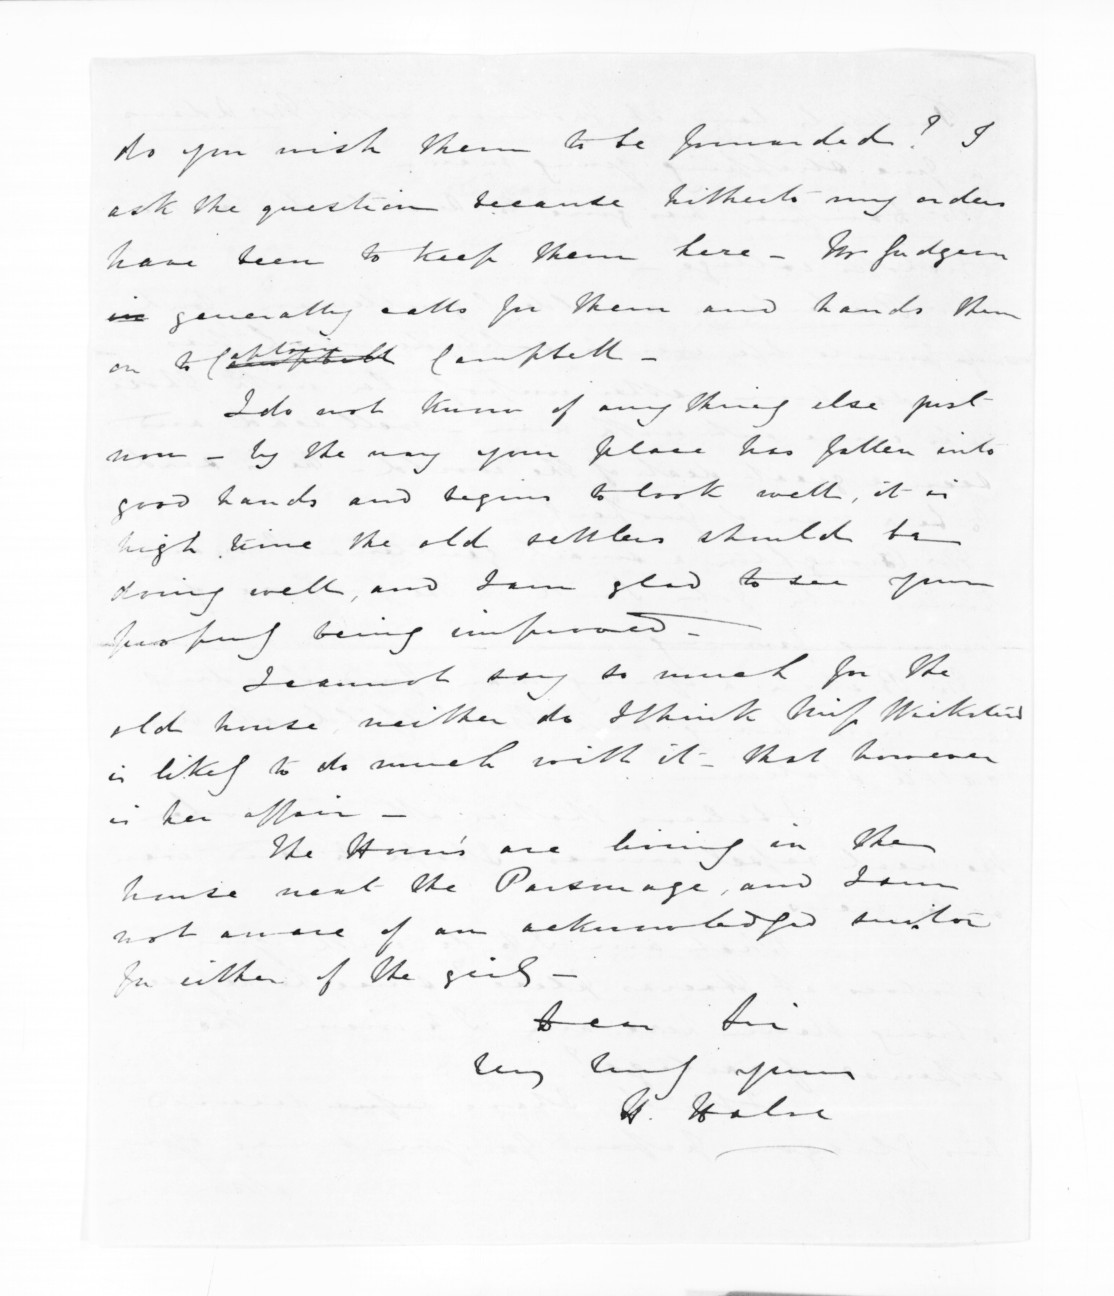 do you wish them to be forwarded? I
ask the question because hitherto my orders
have been to keep them here - Mr Gudgeon
in generally calls for them and hands them
on to Captain Campbell -
I do not know of any thing else just
now - by the way your place has fallen into
good hands and begins to look well, it is
high time the old settlers should be
doing well, and I am glad to see your
property being improved -
I cannot say so much for the
old house neither do I think Miss Wicksteed
is likely to do much with it - that however
is her affair -
The are living in the
house next the Parsonage, and I am
not aware of an acknowledged suitor
for either of the girls -
Dear Sir
Very truly yours
H. Halse